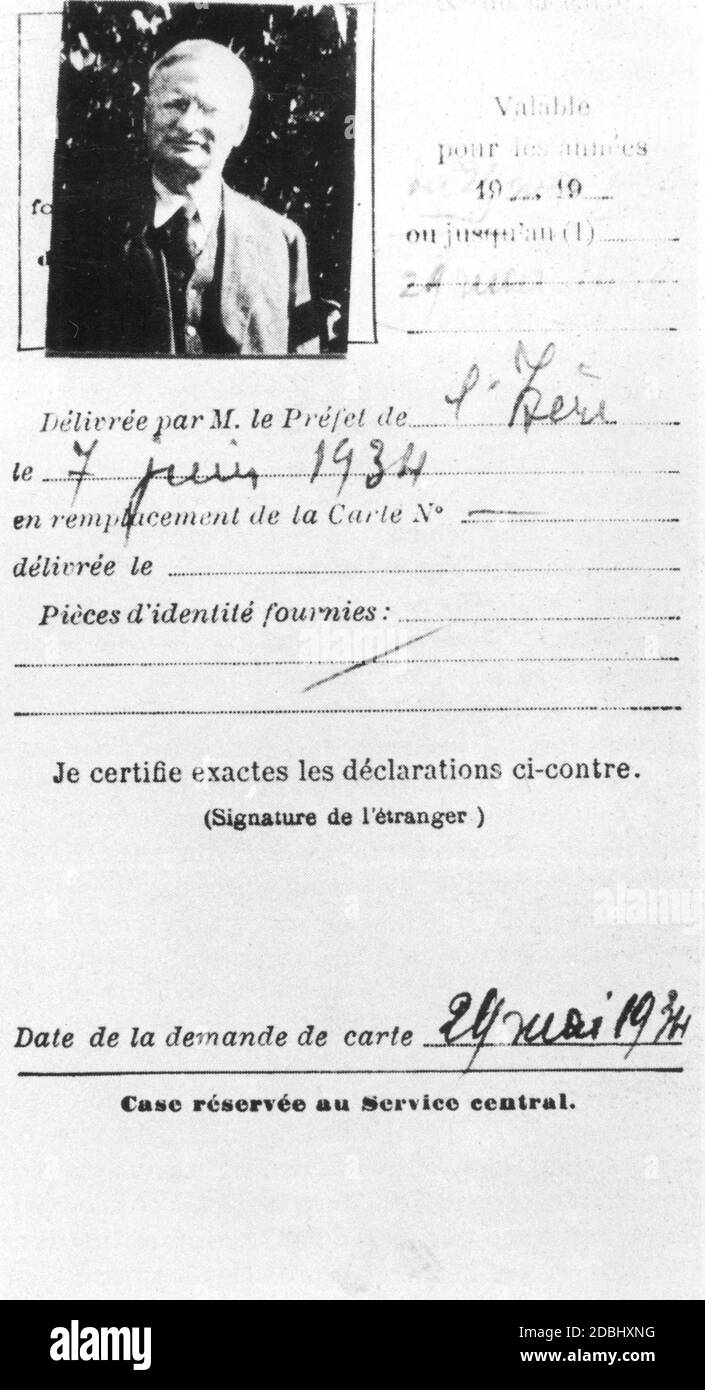 Valable
pour les années
19 19
ou jusqu'au (1)
29 mai
Délivrée par M. le Préfet de l'Isère
le 7 juin 1934
en remplacement de la Carte N° —
délivrée le
Pièces d'identité fournies :
Je certifie exactes les déclarations ci-contre.
(Signature de l'étranger )
Date de la demande de carte 29 mai 1934
Case réservée au Service central.
alamy
alamy
alamy
Image ID: 2DBHXNG
www.alamy.com